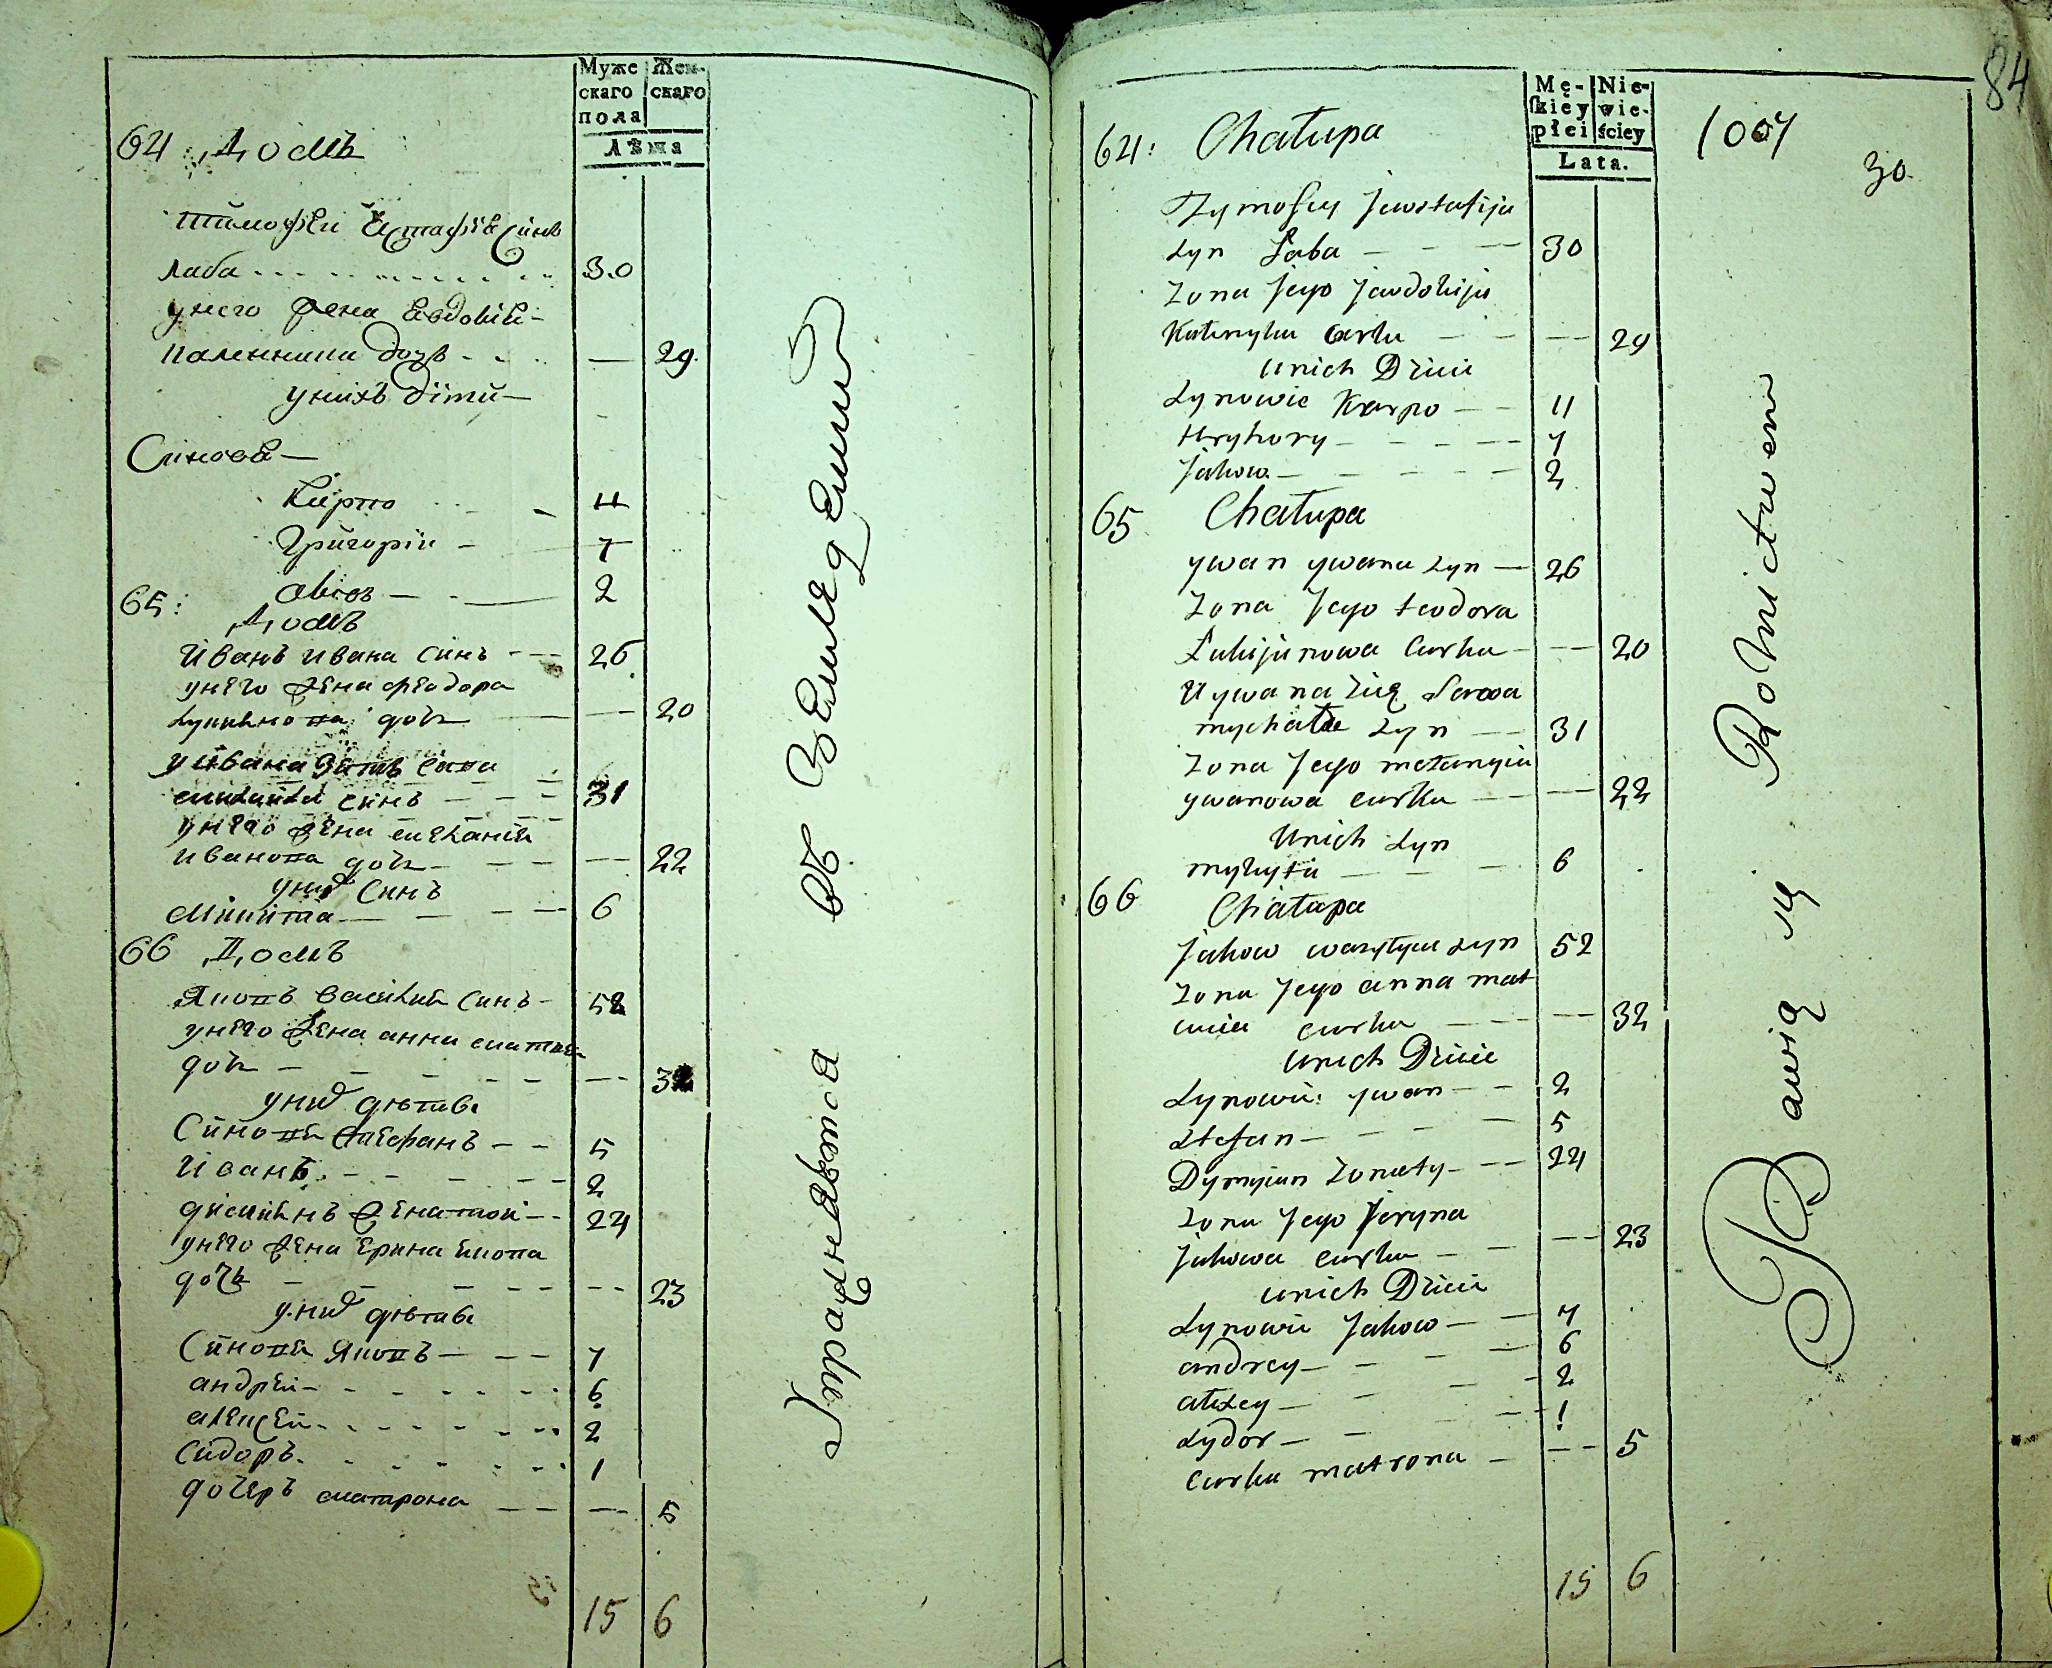 Муже
скаго
пола
Жен-
скаго
Лѣта
64 Домъ
Тимофей Естафіѣ синъ
Лаба 30
у него жена Евдокіѣ
Каленика дочъ — 29
у нихъ діти
Синовѣ
Карпо 11
Григоріи 7
Яков 2
65: Домъ
Иванъ Ивана синъ 26
у него жена Феодора
Лукияно па дочъ — 20
у Ивана зять Сава
михайла синъ 31
у него жена мелания
Ивано па дочъ — 22
у них синъ
Микита 6
66 Домъ
Яковъ Василия синъ 52
у него жена анна матвея
дочъ — 32
у них дѣти
Синовѣ Стефанъ 5
Иванъ 2
димиянъ женатой 24
у него жена Ерина
дочъ — 23
у них дѣти
Синовѣ Яковъ 7
андрей 6
алексей 2
Сидоръ 1
дочеръ матрона — 5
15 6
Упражняется въ Земледелии
84
Mę-
skiey
płci
Nie-
wie-
ściey
Lata.
1007
30
64: Chałupa
Tymofiey Jewstafija
Syn Łaba 30
Zona Jego Jewdokija
Kalenyka Curka — 29
U nich Dzieci
Synowie Karpo 11
Hryhory 7
Jakow 2
65 Chałupa
ywan ywana Syn 26
Zona Jego teodora
Łukijanowa Curka — 20
U ywana Zięć Sawa
mychała Syn 31
Zona Jego mełanyia
ywanowa curka — 22
U nich Syn
mykyta 6
66 Chałupa
Jakow wasylyia Syn 52
Zona Jego anna mat
wiia curka — 32
U nich Dzieci
Synowie ywan 2
Stefan 5
Dymyian Zonaty 24
Zona Jego Jeryna
Jakowa curka — 23
U nich Dzieci
Synowie Jakow 7
andrey 6
ałexey 2
Sydor 1
Curka matrona — 5
15 6
Bawią się Rolnictwem